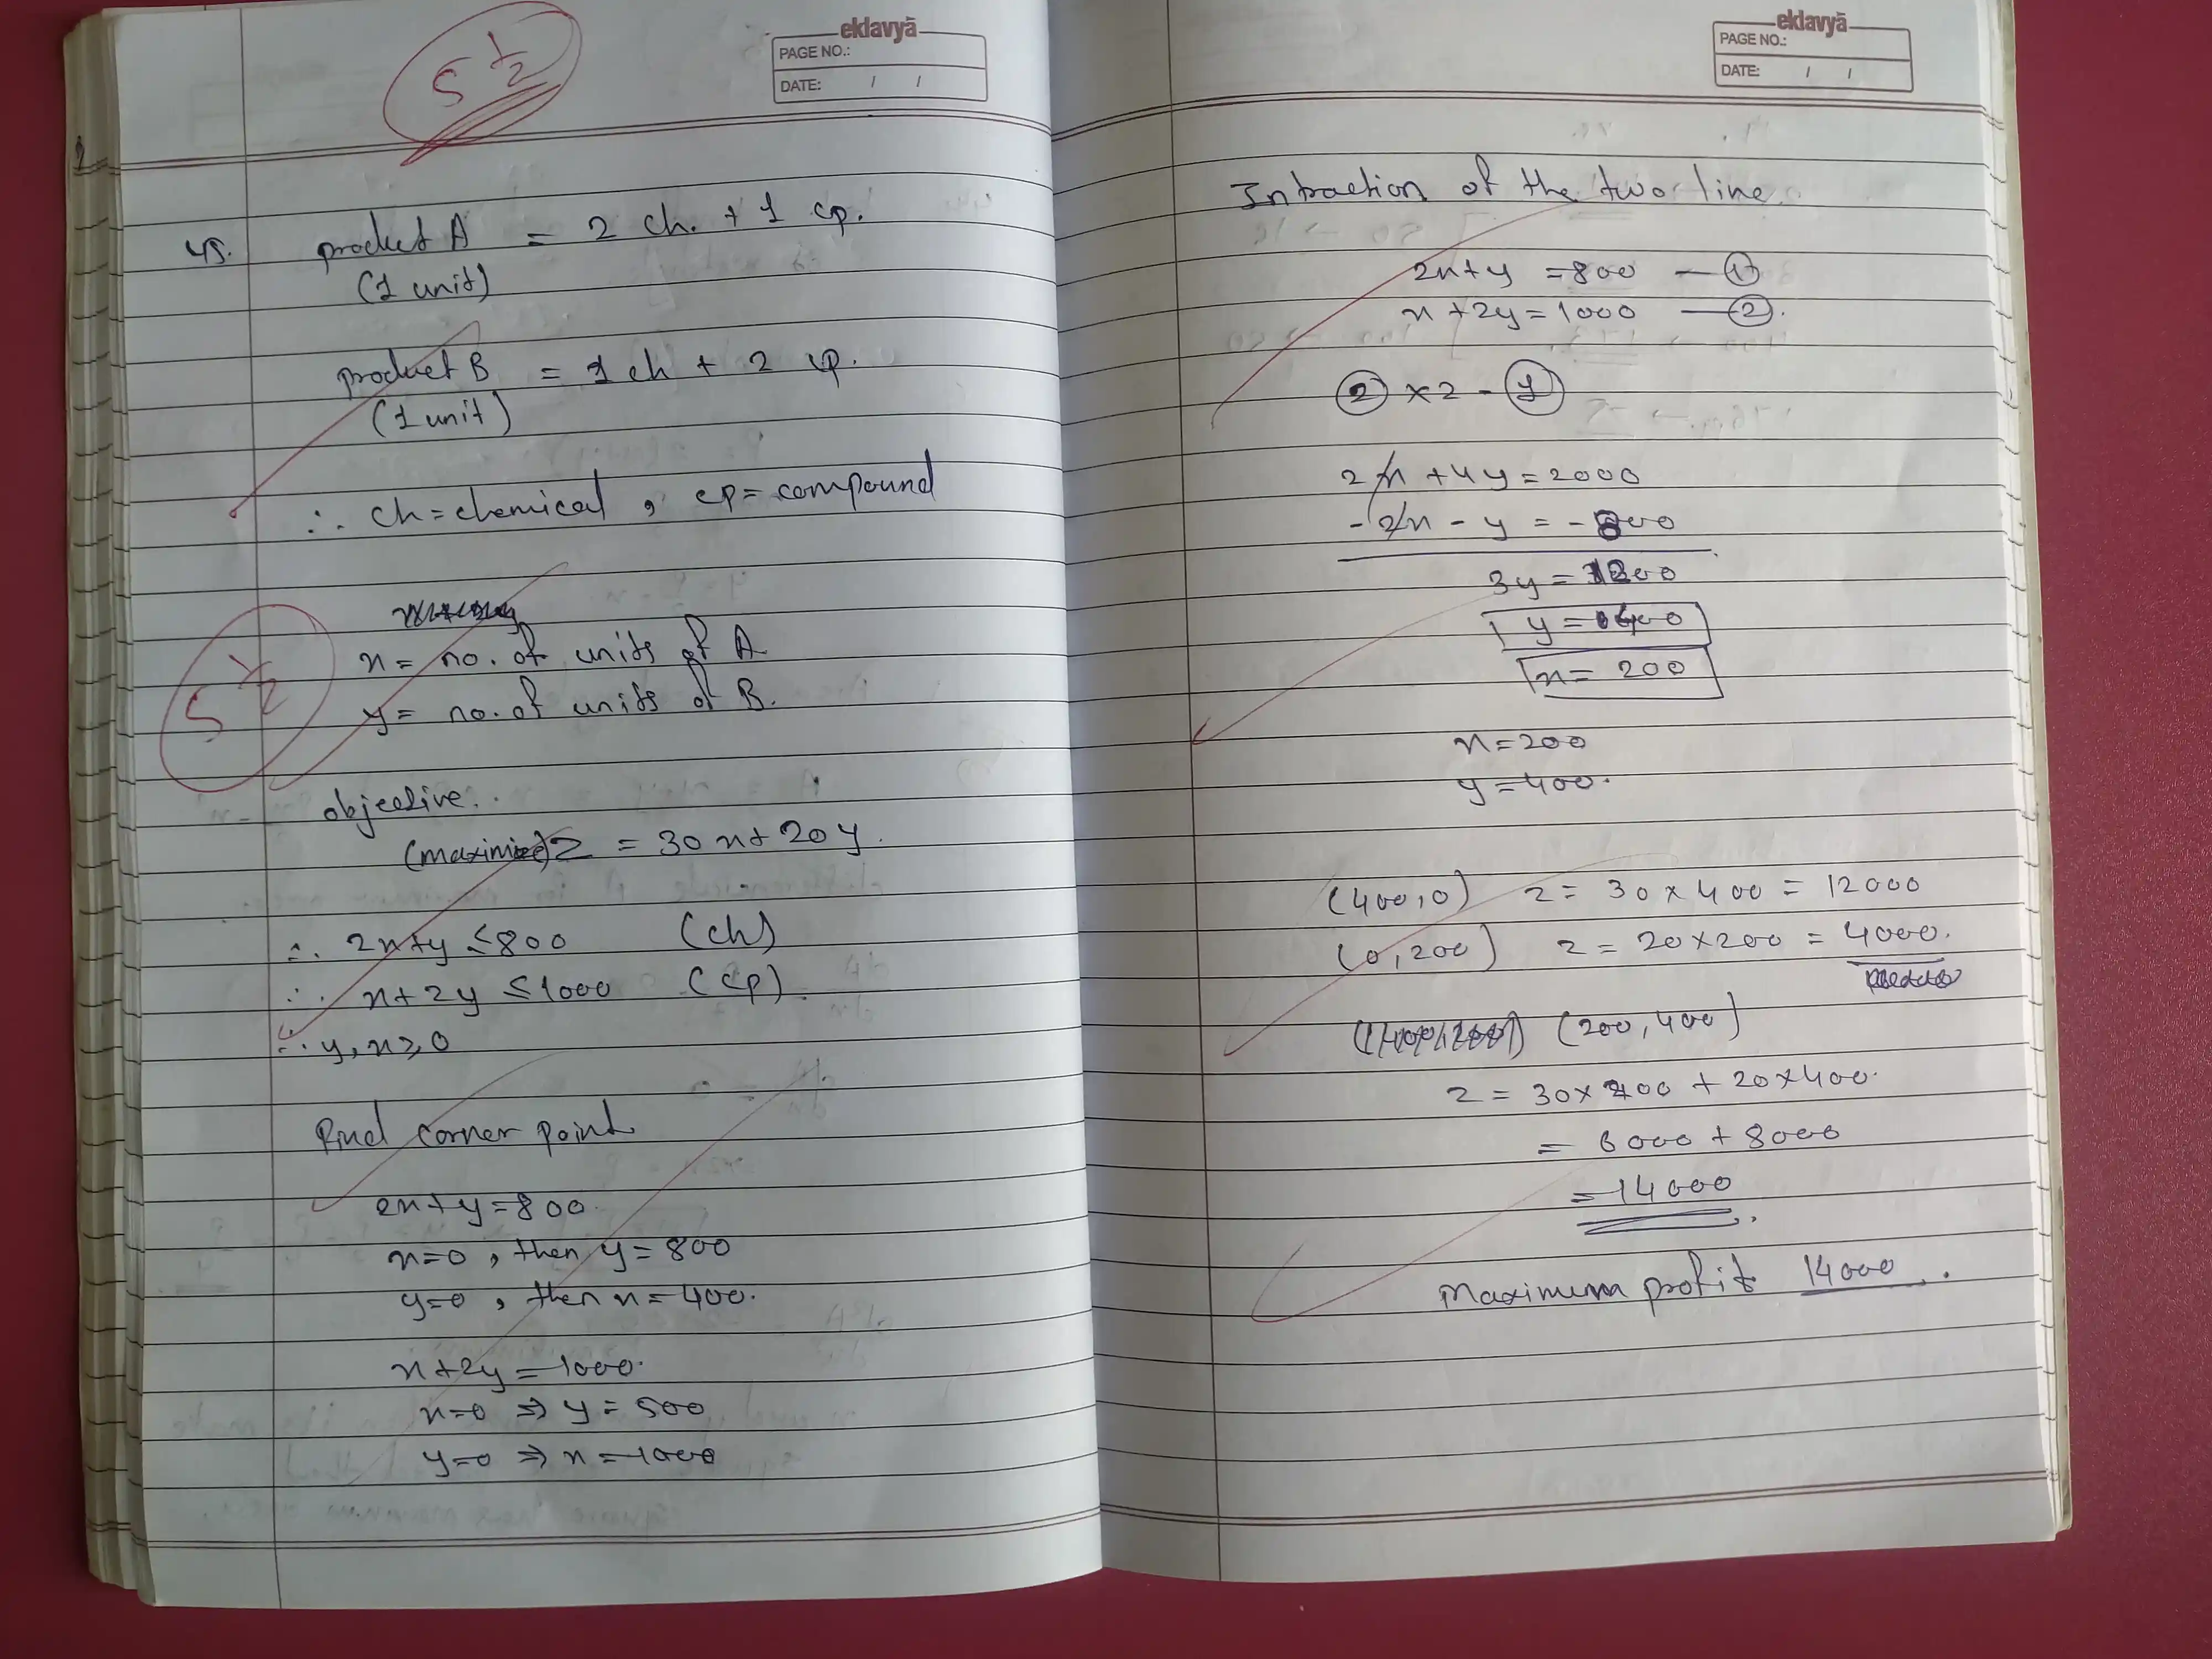 eklavyā
PAGE NO.:
DATE: / /
5 1/2
45. product A = 2 ch. + 1 cp.
(1 unit)
product B = 1 ch + 2 cp.
(1 unit)
∴ ch = chemical , cp = compound
5 1/2
x = no. of units of A
y = no. of units of B.
objective..
(maximize) Z = 30x + 20y.
∴ 2x+y ≤ 800 (ch)
∴ x+2y ≤ 1000 (cp)
∴ y, x ≥ 0
Find corner point
2x+y=800.
x=0 , then y = 800
y=0 , then x = 400.
x+2y = 1000.
x=0 ⇒ y = 500
y=0 ⇒ x = 1000
eklavyā
PAGE NO.:
DATE: / /
Intraction of the two line
2x+y = 800 — ①
x+2y = 1000 — ②.
② × 2 - ①
2x + 4y = 2000
- 2x - y = - 800
3y = 1200
y = 400
x = 200
x = 200
y = 400.
(400,0) z = 30 × 400 = 12000
(0,200) z = 20×200 = 4000.
(200, 400)
z = 30×200 + 20×400.
= 6000 + 8000
= 14000
Maximum profit 14000.